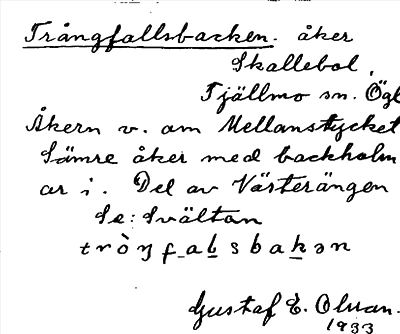 Trångfallsbacken. åker
Skallebol,
Tjällmo sn. Ögl
Åkern v. om Mellanstycket
Sämre åker med backholm
ar i. Del av Västerängen
Se: Svältan
tròŋfalsbakən
Gustaf E. Olsson.
1933